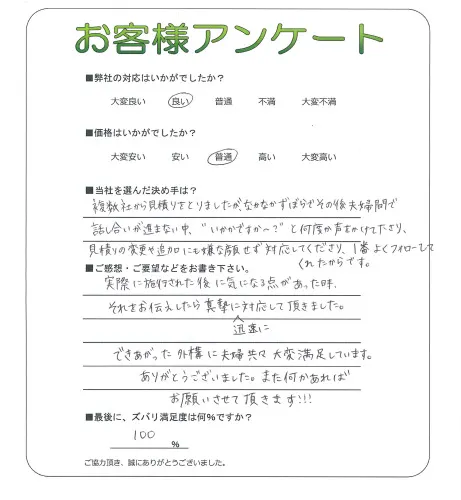 お客様アンケート
■弊社の対応はいかがでしたか？
大変良い 良い 普通 不満 大変不満
■価格はいかがでしたか？
大変安い 安い 普通 高い 大変高い
■当社を選んだ決め手は？
複数社から見積りをとりましたが、なかなかずぼらでその後夫婦間で
話し合いが進まない中、"いかがですか〜?"と何度か声をかけて下さり、
見積りの変更や追加にも嫌な顔せず対応してくださり、1番よくフォローして
くれたからです。
■ご感想・ご要望などをお書き下さい。
実際に施行された後に気になる点があった時、
それをお伝えしたら真摯に対応して頂きました。
迅速に
できあがった外構に夫婦共々大変満足しています。
ありがとうございました。また何かあれば
お願いさせて頂きます!!!
■最後に、ズバリ満足度は何%ですか？
100 %
ご協力頂き、誠にありがとうございました。